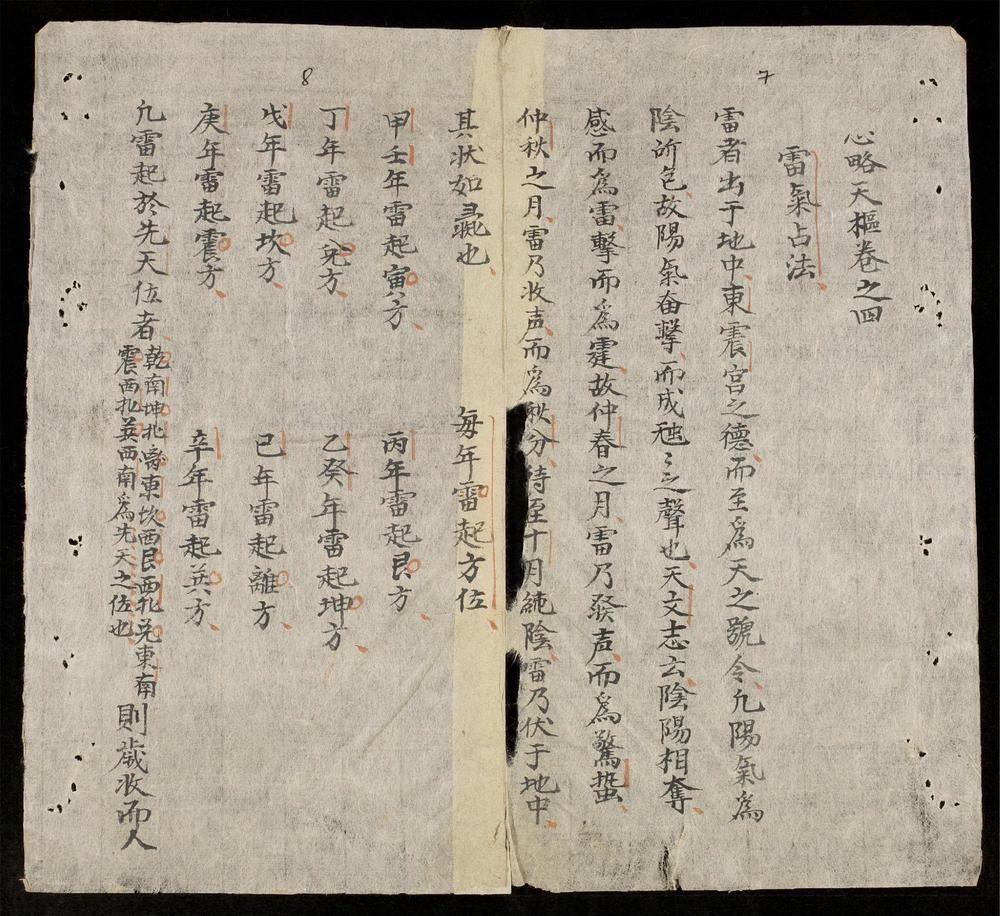 7
心略天樞卷之四
雷氣占法
雷者出于地中東震宮之德而至為天之號令凡陽氣為
陰所包故陽氣奋擊而成䖏〻之聲也天文志云陰陽相奪
感而為雷擊而為霆故仲春之月雷乃發声而為驚蟄
仲秋之月雷乃收声而為秋分待至十月純陰雷乃伏于地中
8
其状如彘也
每年雷起方位
甲壬年雷起寅方
丙年雷起艮方
丁年雷起兌方
乙癸年雷起坤方
戊年雷起坎方
已年雷起離方
庚年雷起震方
辛年雷起巽方
凡雷起於先天位者
乾南坤北离東坎西艮西北兌東南
震西北巽西南為先天之位也
則歲收而人